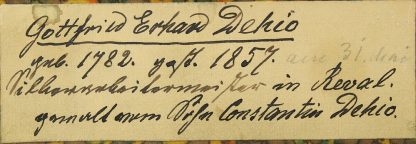 Gottfried Erhard Dehio
geb. 1782. gest. 1857. am 31.
Silberarbeitermeister in Reval.
gemalt vom Sohn Constantin Dehio.